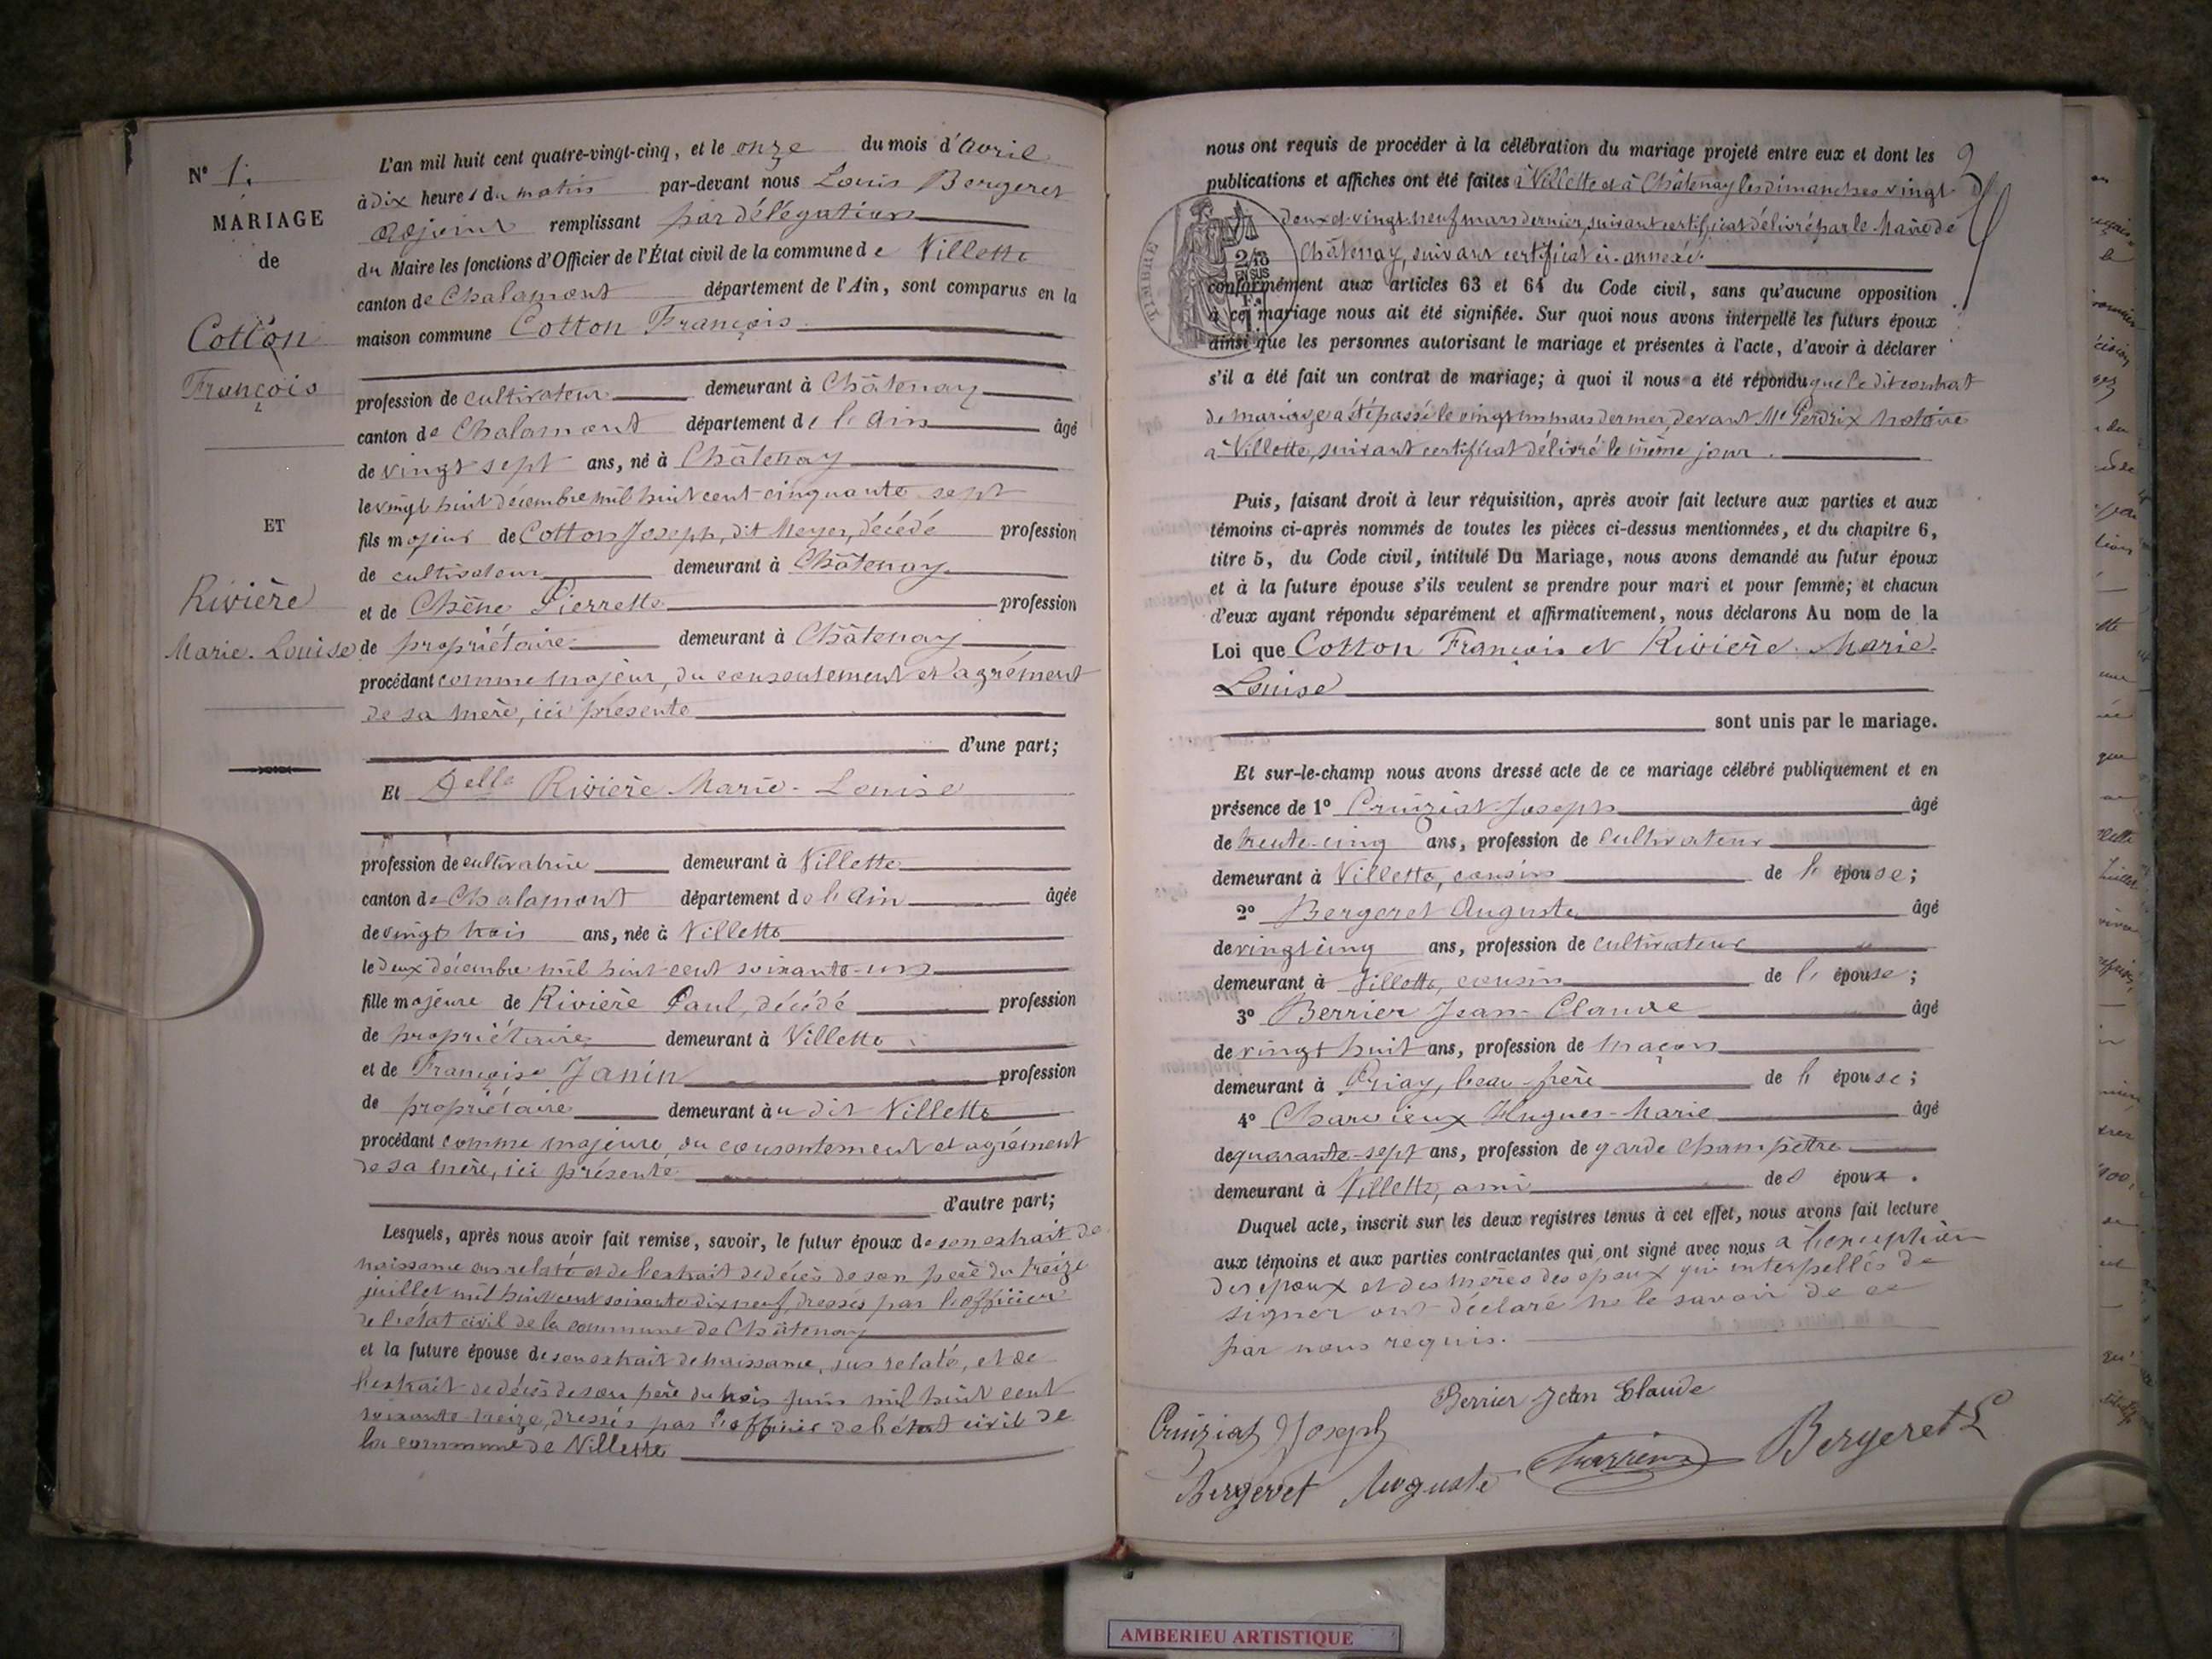 N° 1.
MARIAGE
de
Cotton
François
ET
Rivière
Marie-Louise
L'an mil huit cent quatre-vingt-cinq, et le onze du mois d'avril
à dix heures du matin par-devant nous Louis Bergeret
adjoint remplissant par délégation
du Maire les fonctions d'Officier de l'État civil de la commune de Villette
canton de Chalamont département de l'Ain, sont comparus en la
maison commune Cotton François
profession de cultivateur demeurant à Châtenay
canton de Chalamont département de l'Ain âgé
de vingt sept ans, né à Châtenay
le vingt huit décembre mil huit cent cinquante sept
fils majeur de Cotton Joseph, dit Meyer, décédé profession
de cultivateur demeurant à Châtenay
et de Chêne Pierrette profession
de propriétaire demeurant à Châtenay
procédant comme majeur, du consentement et agrément
de sa mère, ici présente
d'une part;
Et Delle Rivière Marie-Louise
profession de cultivatrice demeurant à Villette
canton de Chalamont département de l'Ain âgée
de vingt trois ans, née à Villette
le deux décembre mil huit cent soixante-un
fille majeure de Rivière Paul, décédé profession
de propriétaire demeurant à Villette
et de Françoise Janin profession
de propriétaire demeurant au dit Villette
procédant comme majeure, du consentement et agrément
de sa mère, ici présente
d'autre part;
Lesquels, après nous avoir fait remise, savoir, le futur époux de son extrait de
naissance susrelaté et de l'extrait de décès de son père du treize
juillet mil huit cent soixante dix neuf, dressés par l'officier
de l'état civil de la commune de Châtenay
et la future épouse de son extrait de naissance, sus relaté, et de
l'extrait de décès de son père du trois juin mil huit cent
soixante treize, dressés par l'officier de l'état civil de
la commune de Villette
2
nous ont requis de procéder à la célébration du mariage projeté entre eux et dont les
publications et affiches ont été faites à Villette et à Châtenay les dimanches vingt
deux et vingt neuf mars dernier, suivant certificat délivré par le Maire de
Châtenay, suivant certificat ci-annexé.
TIMBRE
2/10
EN SUS
1 F.
conformément aux articles 63 et 64 du Code civil, sans qu'aucune opposition
à ce mariage nous ait été signifiée. Sur quoi nous avons interpellé les futurs époux
ainsi que les personnes autorisant le mariage et présentes à l'acte, d'avoir à déclarer
s'il a été fait un contrat de mariage; à quoi il nous a été répondu que le dit contrat
de mariage a été passé le vingt un mars dernier, devant Me Perdrix notaire
à Villette, suivant certificat délivré le même jour.
Puis, faisant droit à leur réquisition, après avoir fait lecture aux parties et aux
témoins ci-après nommés de toutes les pièces ci-dessus mentionnées, et du chapitre 6,
titre 5, du Code civil, intitulé Du Mariage, nous avons demandé au futur époux
et à la future épouse s'ils veulent se prendre pour mari et pour femme; et chacun
d'eux ayant répondu séparément et affirmativement, nous déclarons Au nom de la
Loi que Cotton François et Rivière Marie-
Louise
sont unis par le mariage.
Et sur-le-champ nous avons dressé acte de ce mariage célébré publiquement et en
présence de 1° Cruiziat Joseph âgé
de trente-cinq ans, profession de cultivateur
demeurant à Villette, cousin de l'épouse;
2° Bergeret Auguste âgé
de vingt cinq ans, profession de cultivateur
demeurant à Villette, cousin de l'épouse;
3° Berrier Jean-Claude âgé
de vingt huit ans, profession de maçon
demeurant à Priay, beau-frère de l'épouse;
4° Charvieux Hugues-Marie âgé
de quarante-sept ans, profession de garde champêtre
demeurant à Villette, ami de l'époux.
Duquel acte, inscrit sur les deux registres tenus à cet effet, nous avons fait lecture
aux témoins et aux parties contractantes qui ont signé avec nous à l'exception
des époux et des mères des époux qui interpellés de
signer ont déclaré ne le savoir de ce
par nous requis.
Berrier Jean Claude
Cruiziat Joseph
Bergeret L
Bergeret Auguste Charvieux
AMBERIEU ARTISTIQUE